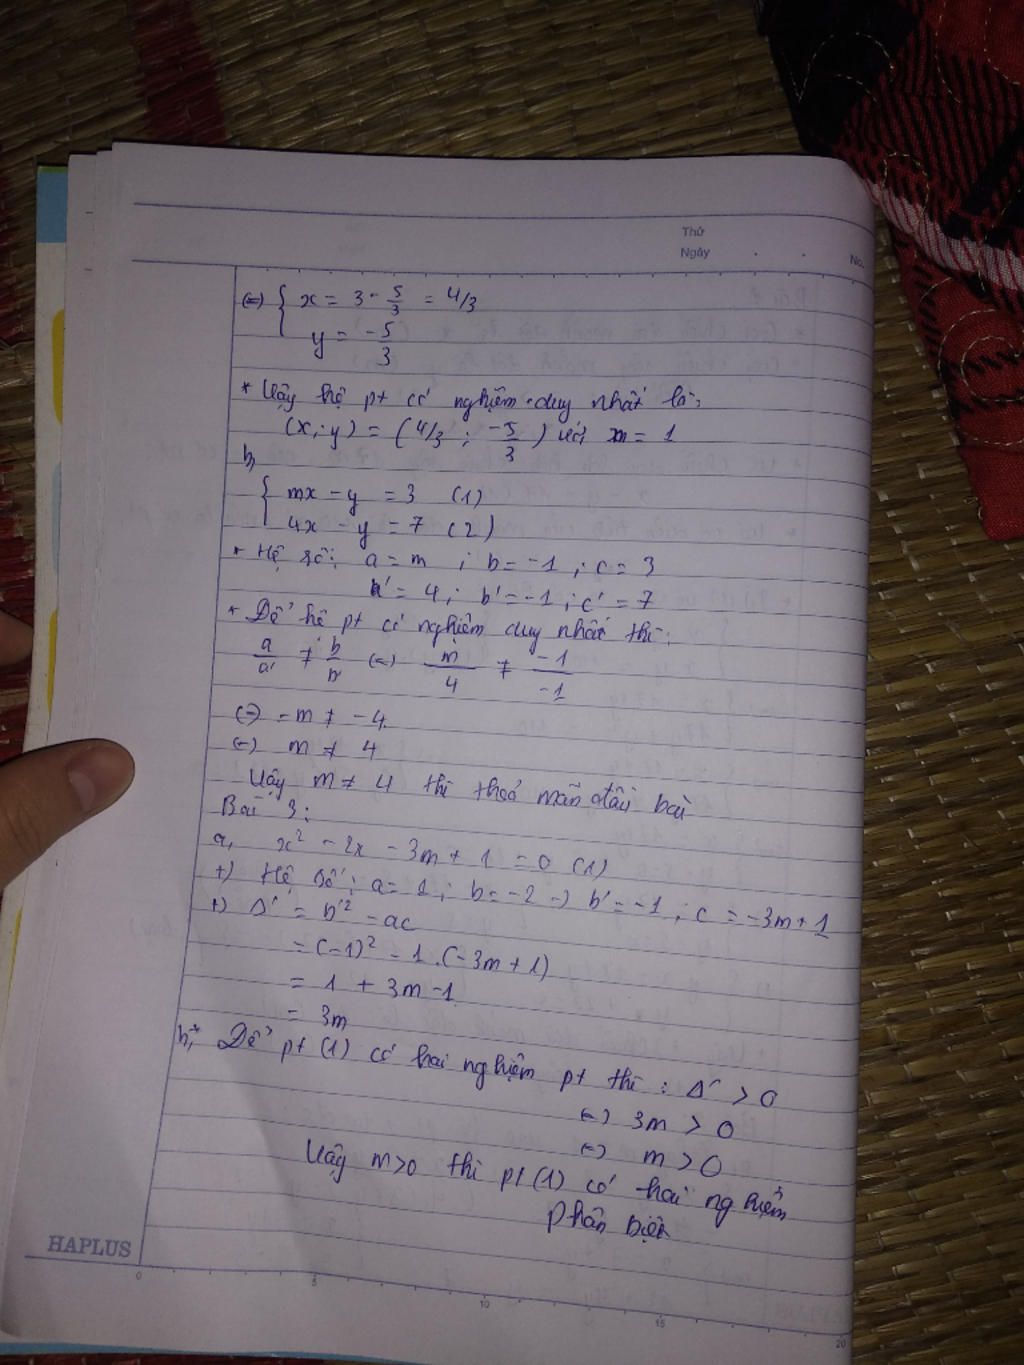 Thứ
Ngày . . No.
(=) { x = 3 - 5/3 = 4/3
y = -5/3
* Vậy hệ pt có nghiệm duy nhất là:
(x;y) = (4/3 ; -5/3) với m = 1
b,
{ mx - y = 3 (1)
4x - y = 7 (2)
* Hệ số: a = m ; b = -1 ; c = 3
a' = 4 ; b' = -1 ; c' = 7
* Để hệ pt có nghiệm duy nhất thì:
a/a' ≠ b/b' (=) m/4 ≠ -1/-1
(=) -m ≠ -4
(=) m ≠ 4
Vậy m ≠ 4 thì thoả mãn đầu bài
Bài 3:
a, x² - 2x - 3m + 1 = 0 (1)
+) Hệ số: a = 1 ; b = -2 -) b' = -1 ; c = -3m + 1
+) Δ' = b'² - ac
= (-1)² - 1.(-3m + 1)
= 1 + 3m - 1
= 3m
b,* Để pt (1) có hai nghiệm pt thì : Δ' > 0
(=) 3m > 0
(=) m > 0
Vậy m > 0 thì pt (1) có hai nghiệm
phân biệt
HAPLUS
0 5 10 15 20